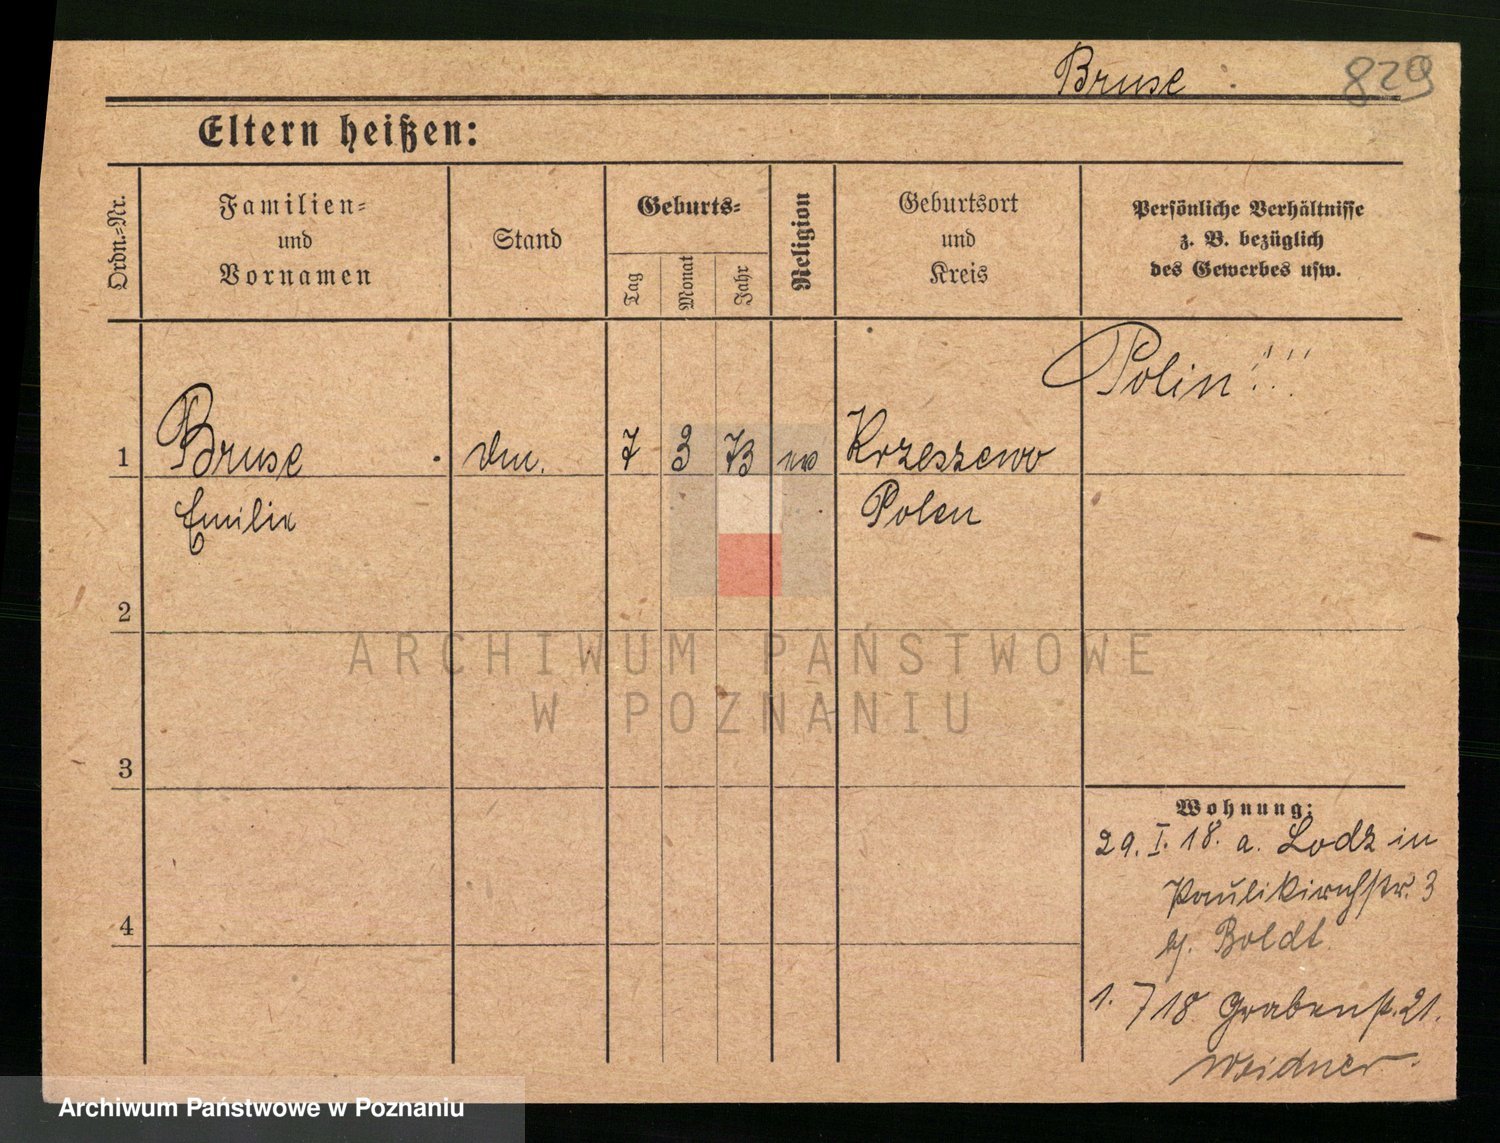 Bruse. 829
Eltern heißen:
Ordn.-Nr.
Familien-
und
Vornamen
Stand
Geburts-
Tag
Monat
Jahr
Religion
Geburtsort
und
Kreis
Persönliche Verhältnisse
z. B. bezüglich
des Gewerbes usw.
Polin!!!
1 Bruse 7 3 73 Krzeszewo
Emilie Polen
2
3
4
Wohnung:
29. I. 18. a. Lodz in
Paulikirchstr. 3
bj. Boldt
1. 7 18 Grabenst. 21.
Weidner.
ARCHIWUM PAŃSTWOWE
W POZNANIU
Archiwum Państwowe w Poznaniu